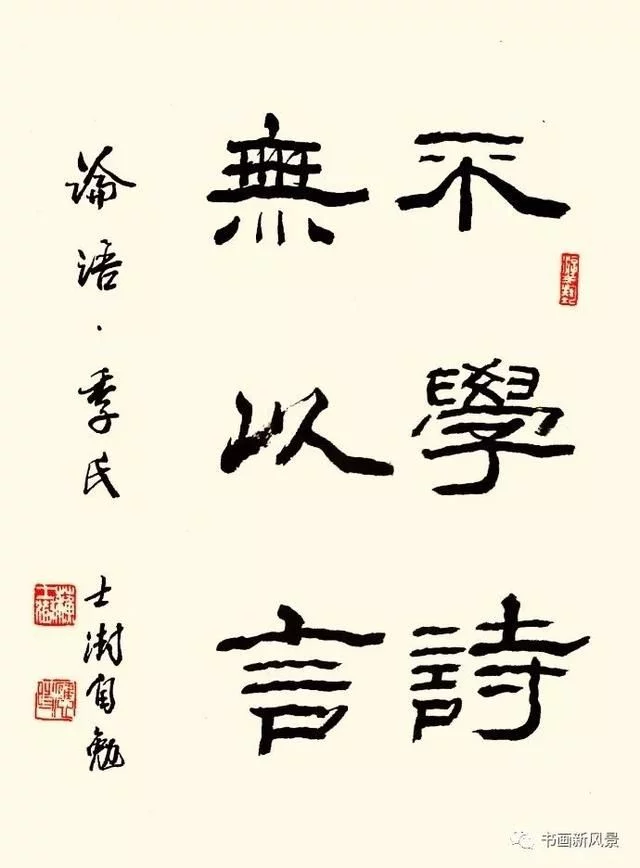 不學詩
無以言
論語·季氏
士澍自勉
书画新风景